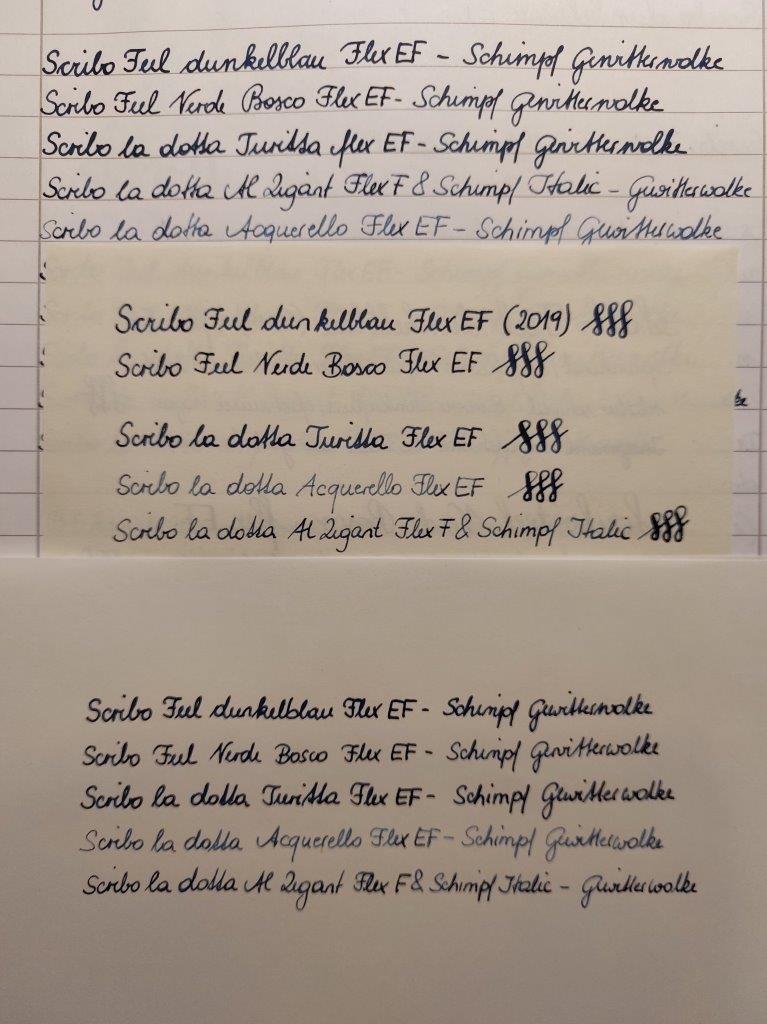 Scribo Feel dunkelblau Flex EF - Schimpf Gewitterwolke
Scribo Feel Verde Bosco Flex EF - Schimpf Gewitterwolke
Scribo la dotta Turissa flex EF - Schimpf Gewitterwolke
Scribo la dotta Al Zigànt Flex F & Schimpf Italic - Gewitterwolke
Scribo la dotta Acquerello Flex EF - Schimpf Gewitterwolke
Scribo Feel dunkelblau Flex EF (2019)
Scribo Feel Verde Bosco Flex EF
Scribo la dotta Turissa Flex EF
Scribo la dotta Acquerello Flex EF
Scribo la dotta Al Zigant Flex F & Schimpf Italic
Scribo Feel dunkelblau Flex EF - Schimpf Gewitterwolke
Scribo Feel Verde Bosco Flex EF - Schimpf Gewitterwolke
Scribo la dotta Turissa Flex EF - Schimpf Gewitterwolke
Scribo la dotta Acquerello Flex EF - Schimpf Gewitterwolke
Scribo la dotta Al Zigant Flex F & Schimpf Italic - Gewitterwolke